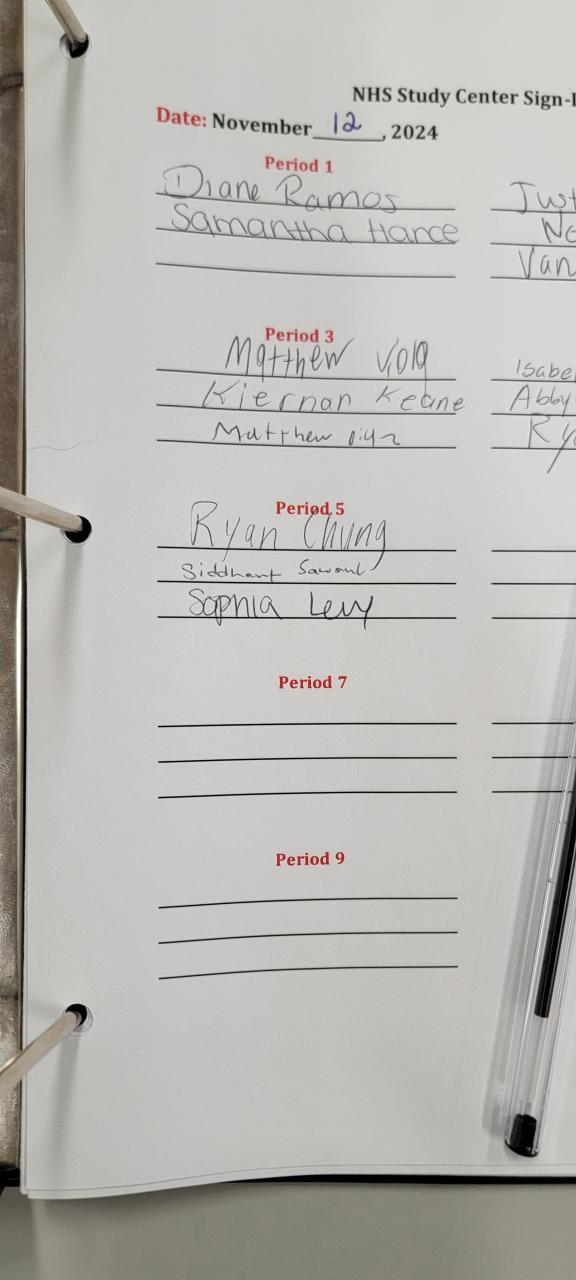 NHS Study Center Sign-I
Date: November 12, 2024
Period 1
Diane Ramos
Samantha Hance
Just
No
Van
Period 3
Matthew Viola
Kiernan Keane
Matthew
Isabe
Abby
Rya
Period 5
Ryan Chung
Siddhant Sawant
Sophia Levy
Period 7
Period 9